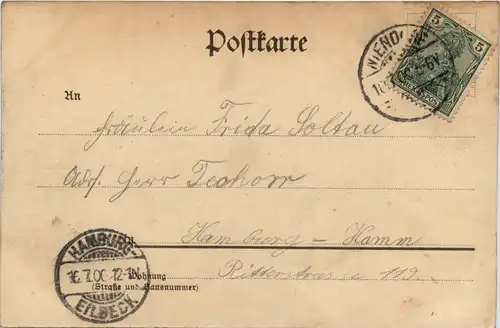 Postkarte
5 5
An
Fräulein Frida Soltau
Adr. Herr
Hamburg-Hamm
Ritterstrasse 119.
Wohnung
(Straße und Hausnummer)
HAMBURG-
16.7.0 12-
EILBECK